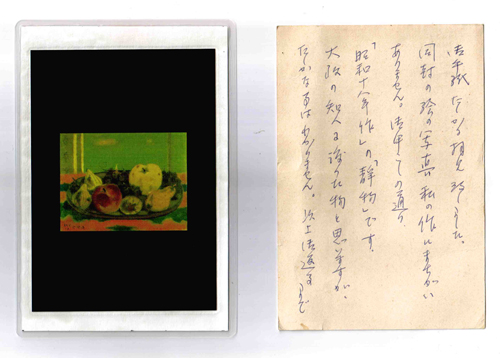 御手紙たしかに拝見致しました。
同封の絵の写真 私の作にまちがい
ありません。御申しての通り
「昭和十八年作」の「静物」です。
大阪の知人に譲った物と思いますが、
たしかな事はわかりません。御返事まで